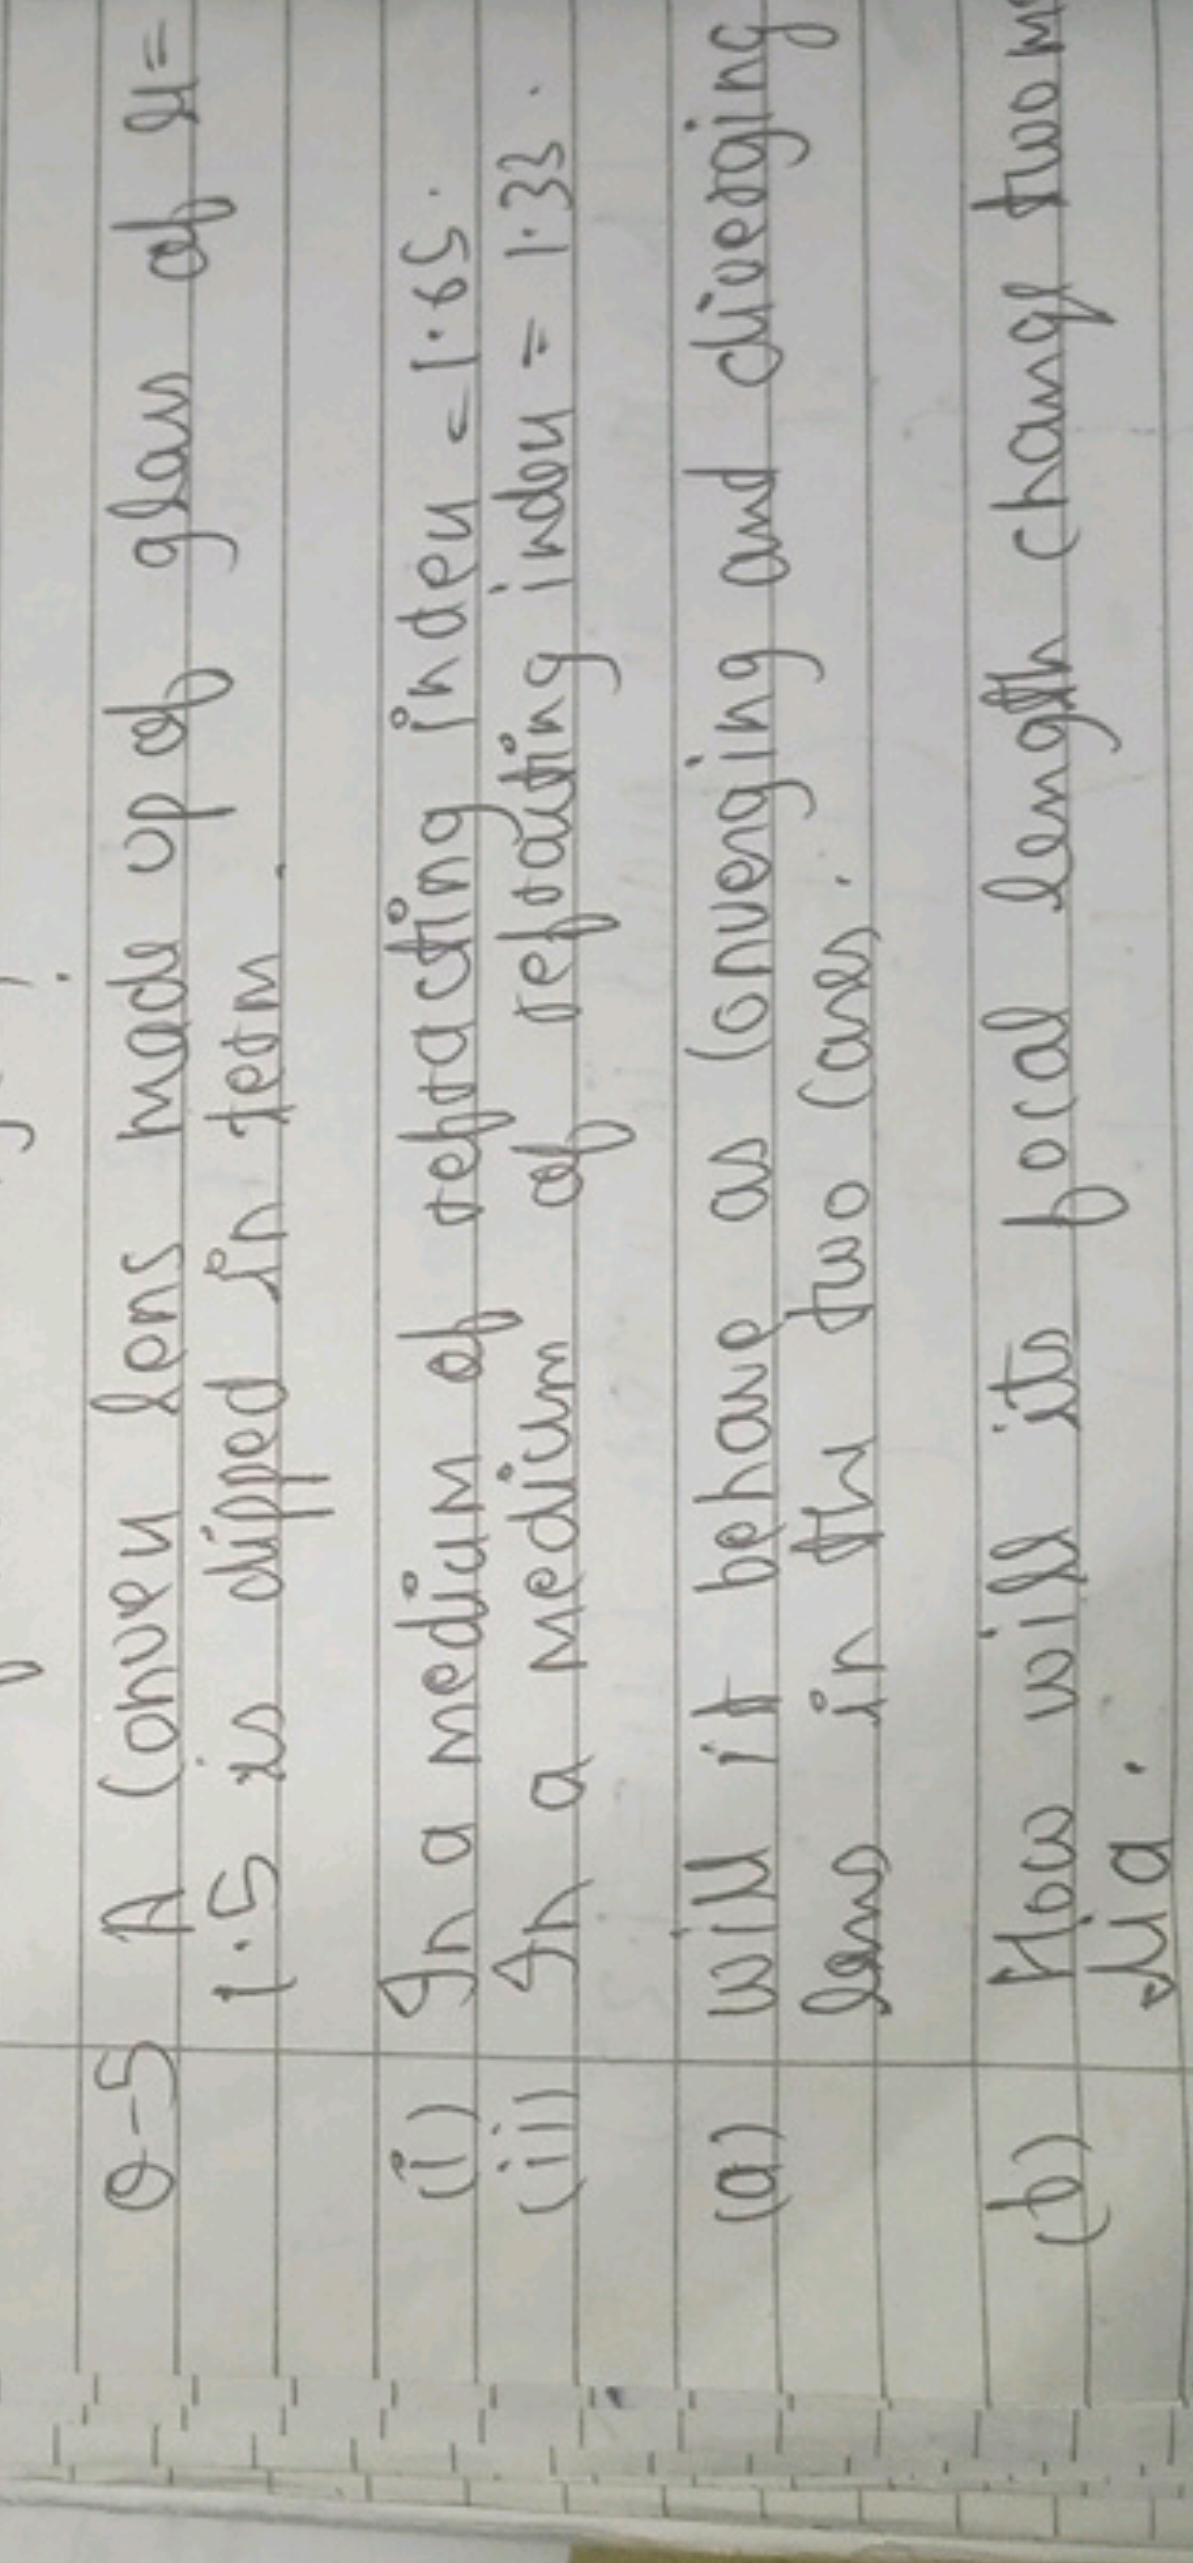 Q-5 A Convex lens made up of glass of μ =
1.5 is dipped in term.
(i) In a medium of refracting index = 1.65.
(ii) In a medium of refracting index = 1.33.
(a) will it behave as Converging and diverging
lens in the two Cases.
(b) How will its focal length change two m
dia.